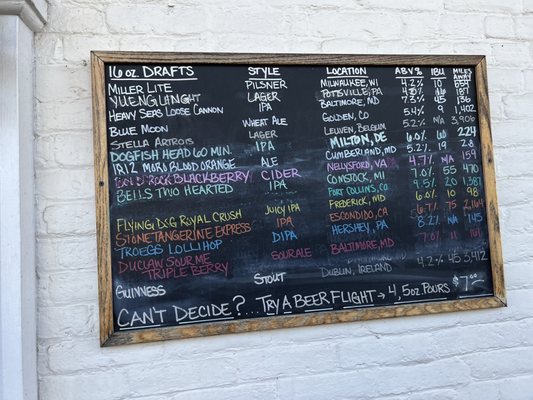 16 oz DRAFTS STYLE LOCATION ABV% IBU MILES AWAY
MILLER LITE PILSNER MILWAUKEE, WI 4.2% 10
YUENGLING LAGER POTTSVILLE, PA
HEAVY SEAS LOOSE CANNON IPA BALTIMORE, MD 7.3% 45 136
BLUE MOON WHEAT ALE GOLDEN, CO 5.4% 9
STELLA ARTROIS LAGER LEUVEN, BELGIUM 5.2% N/A 3,906
DOGFISH HEAD 60 MIN. IPA MILTON, DE 6.0% 60 224
1812 MORO BLOOD ORANGE ALE CUMBERLAND, MD 5.2% 19
BOLD ROCK BLACKBERRY CIDER NELLYSFORD, VA 4.7% N/A 159
BELLS TWO HEARTED IPA COMSTOCK, MI 7.0% 55 470
FORT COLLINS, CO 9.5% 20
FLYING DOG ROYAL CRUSH JUICY IPA FREDERICK, MD 6.0% 10 98
STONE TANGERINE EXPRESS IPA ESCONDIDO, CA 6.7% 75
TROEGS LOLLIHOP DIPA HERSHEY, PA 8.2% N/A 145
DUCLAW SOUR ME SOURALE BALTIMORE, MD
TRIPLE BERRY
GUINNESS STOUT DUBLIN, IRELAND 4.2% 45 3,412
CAN'T DECIDE?... TRY A BEER FLIGHT → 4, 5oz. POURS $7.00